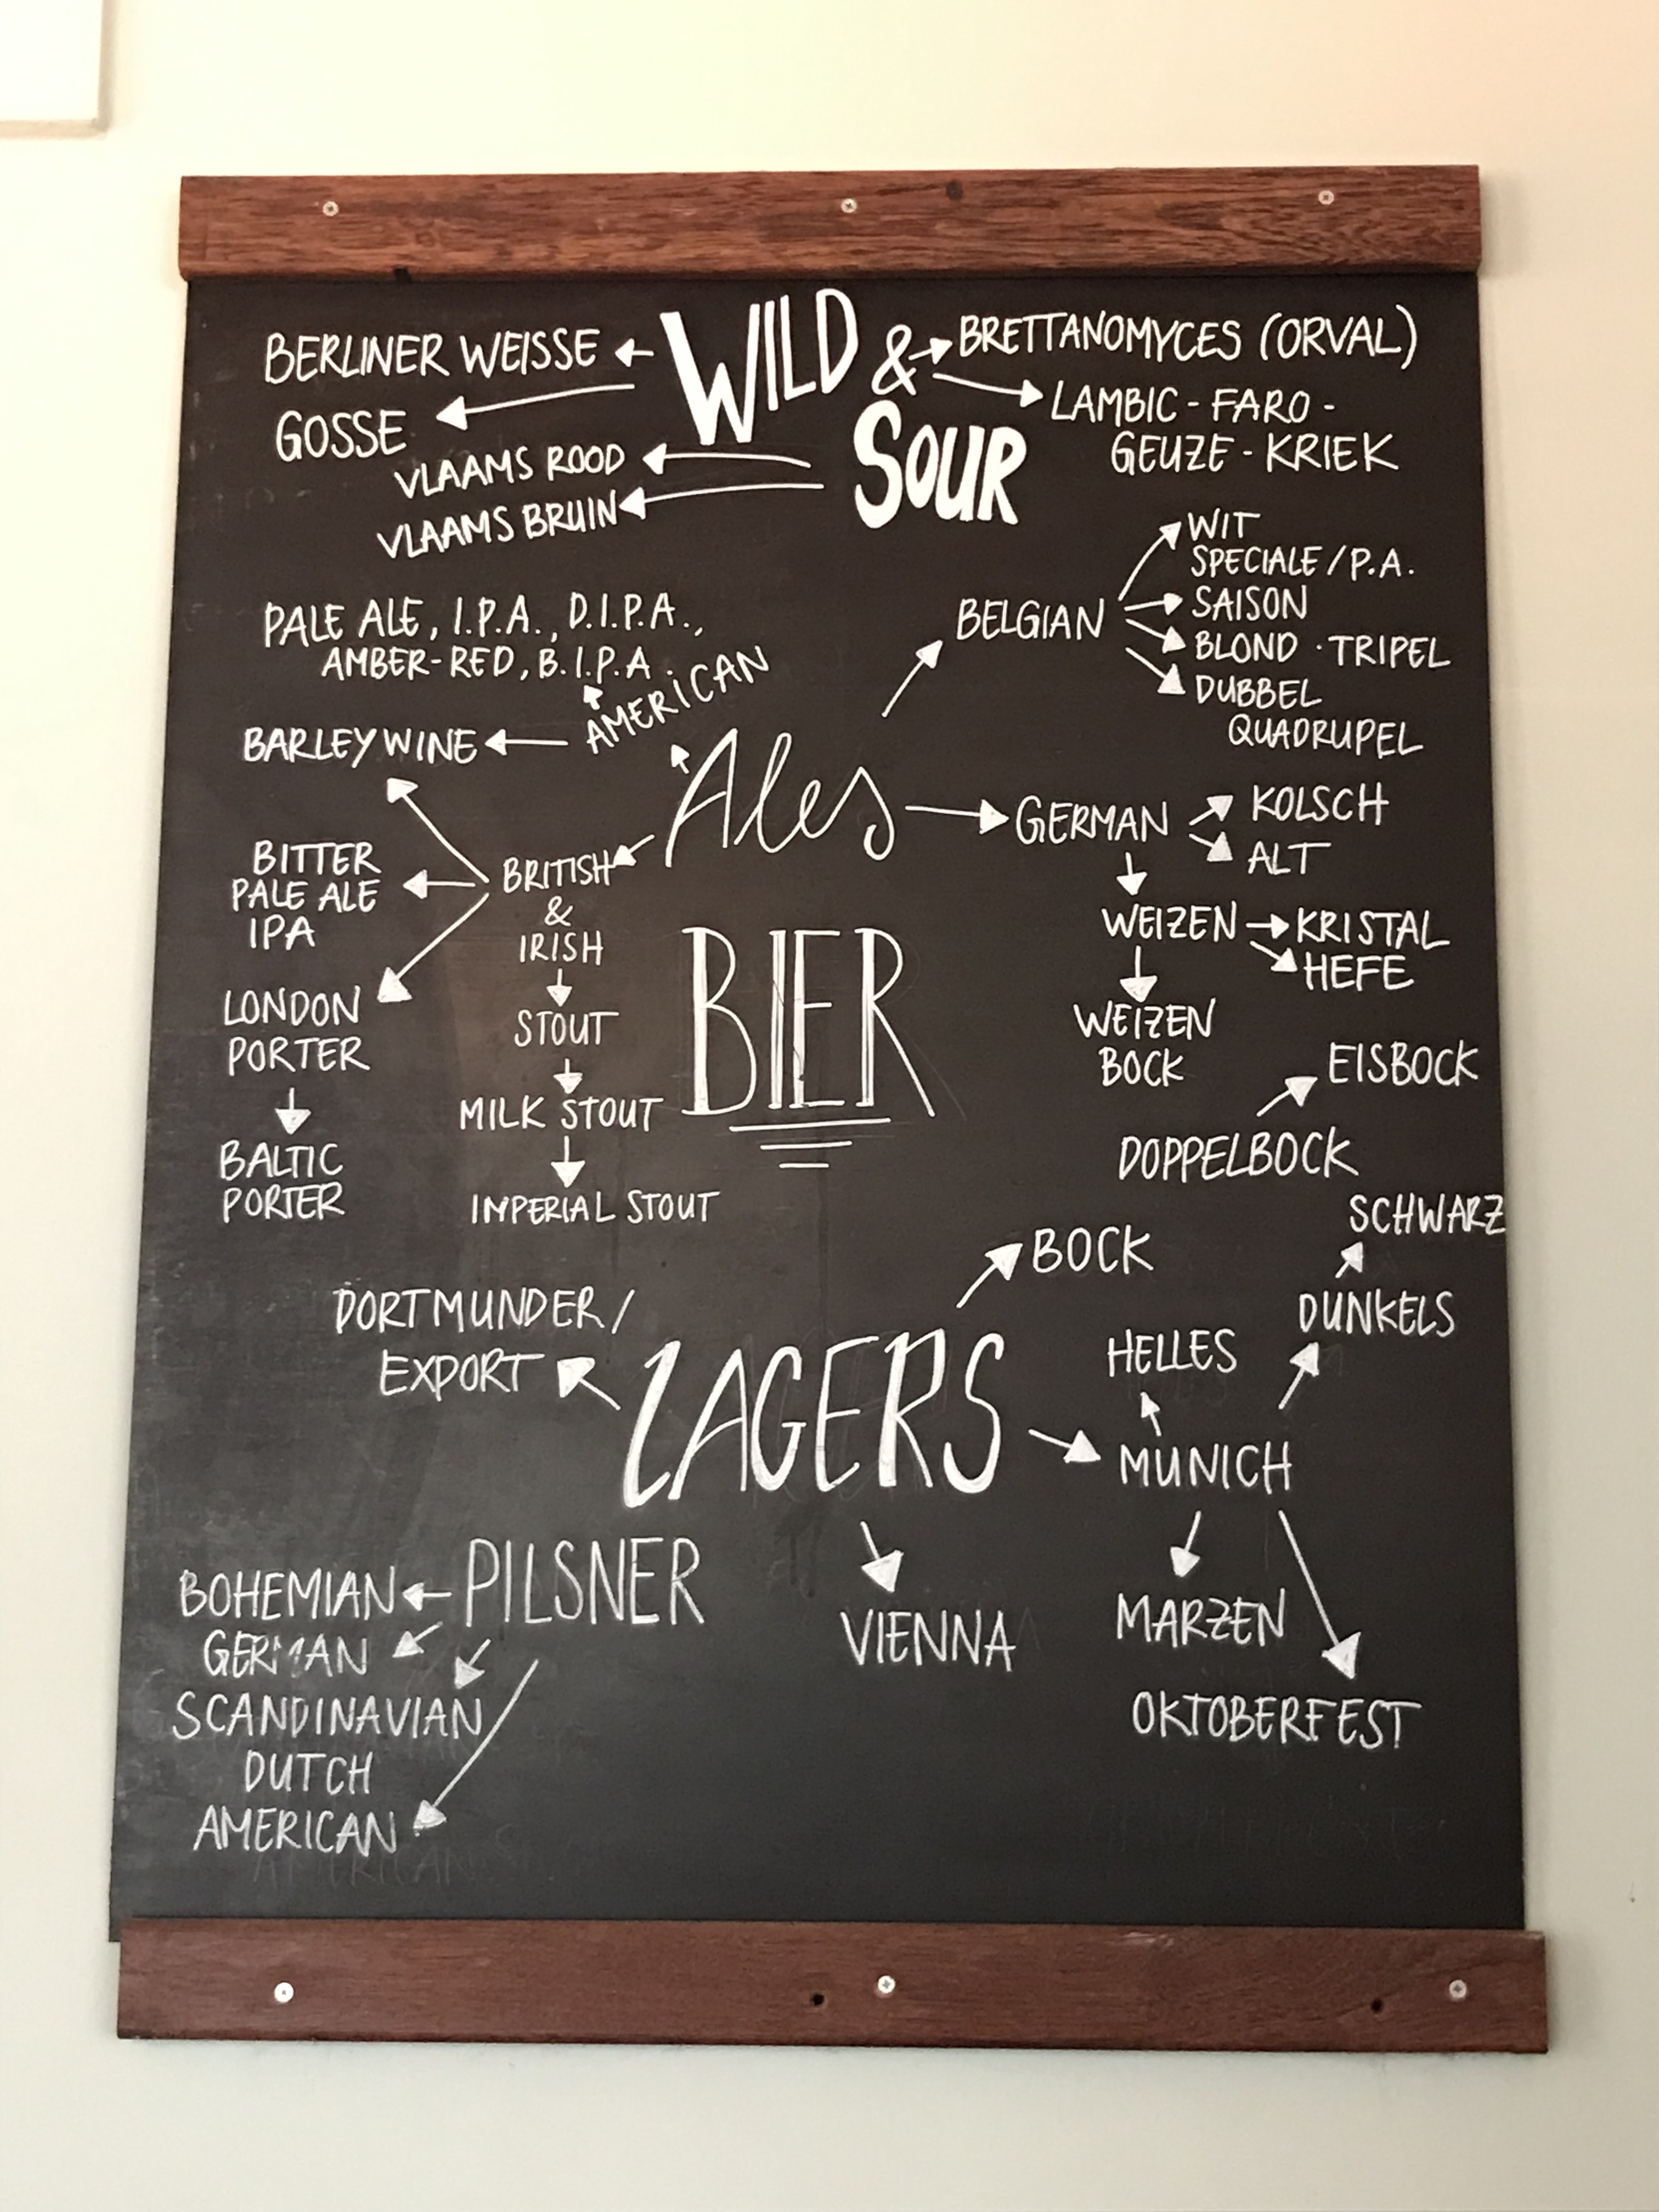 BERLINER WEISSE
GOSSE
VLAAMS ROOD
VLAAMS BRUIN
WILD &
SOUR
BRETTANOMYCES (ORVAL)
LAMBIC - FARO -
GEUZE - KRIEK
PALE ALE, I.P.A., D.I.P.A.,
AMBER-RED, B.I.P.A.
AMERICAN
BARLEY WINE
Ales
BELGIAN
WIT
SPECIALE / P.A.
SAISON
BLOND · TRIPEL
DUBBEL
QUADRUPEL
GERMAN
KOLSCH
ALT
WEIZEN
KRISTAL
HEFE
WEIZEN
BOCK
BRITISH
&
IRISH
STOUT
MILK STOUT
IMPERIAL STOUT
BITTER
PALE ALE
IPA
LONDON
PORTER
BALTIC
PORTER
BIER
EISBOCK
DOPPELBOCK
BOCK
SCHWARZ
DUNKELS
HELLES
MUNICH
MARZEN
OKTOBERFEST
LAGERS
DORTMUNDER /
EXPORT
VIENNA
PILSNER
BOHEMIAN
GERMAN
SCANDINAVIAN
DUTCH
AMERICAN